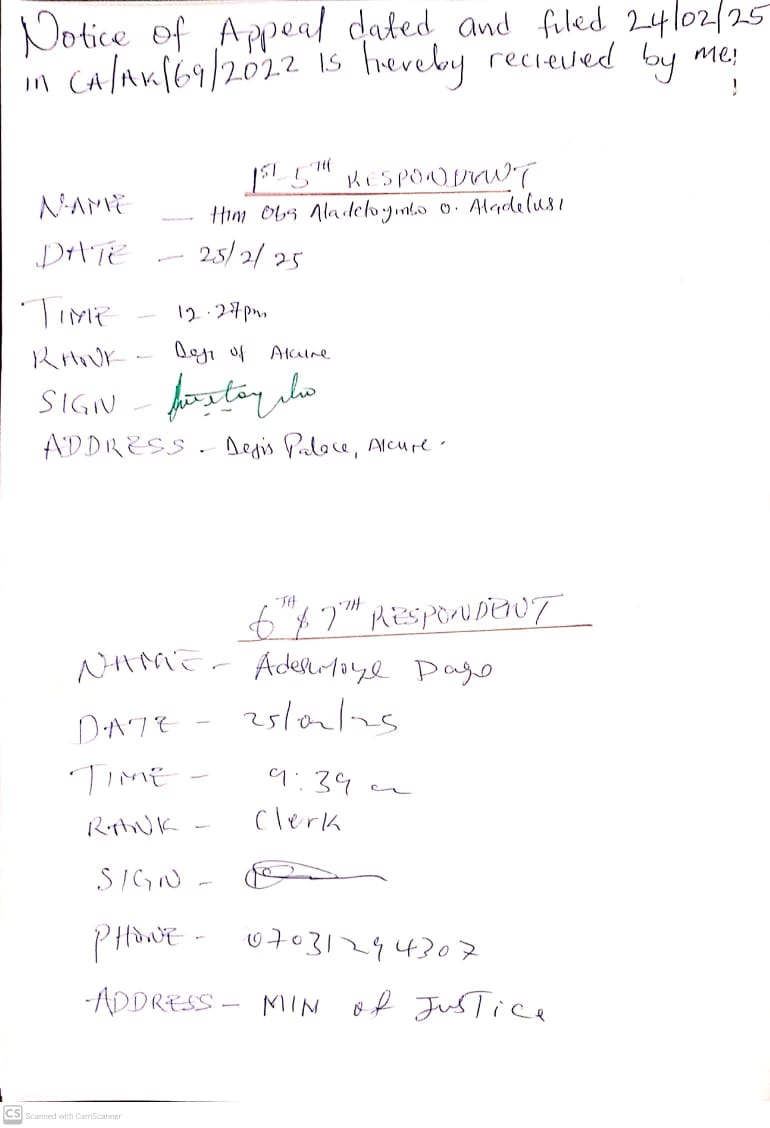 Notice of Appeal dated and filed 24/02/25
in CA/AK/69/2022 is hereby recieved by me:
1ST-5TH RESPONDENT
NAME - HIM Oba Aladetoyinbo O. Aladelusi
DATE - 25/2/25
TIME - 12.27pm
RANK - Deji of Akure
SIGN -
ADDRESS - Dejis Palace, Akure.
6TH & 7TH RESPONDENT
NAME - Dayo
DATE - 25/02/25
TIME - 9:39 a
RANK - Clerk
SIGN -
PHONE - 07031294307
ADDRESS - MIN of Justice
CS Scanned with CamScanner